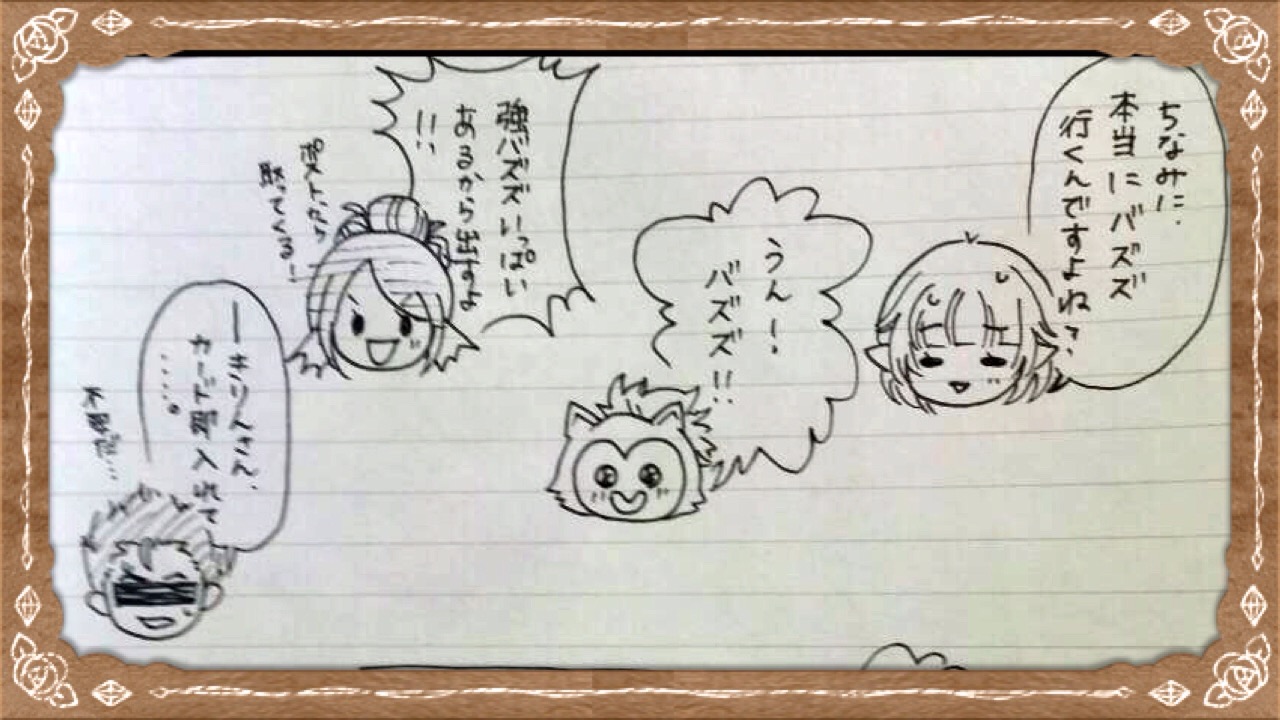 ちなみに、
本当にバズズ
行くんですよね？
うん！
バズズ!!
強バズズいっぱい
あるから出すよ
!!
ポストから
取ってくる！
ーきりんさん、
カード即入れて
……。
不要だ…